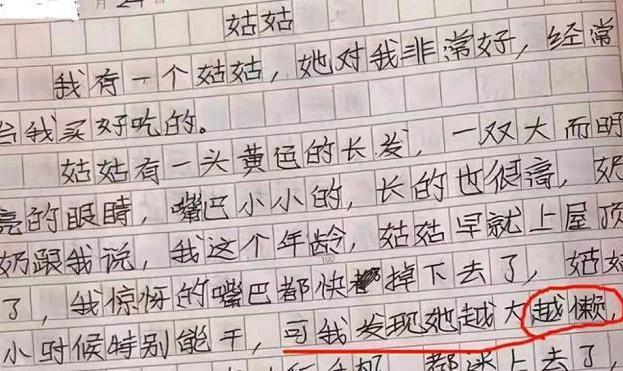 月24日
姑姑
我有一个姑姑，她对我非常好，经常
给我买好吃的。
姑姑有一头黄色的长发，一双大而明
亮的眼睛，嘴巴小小的，长的也很高，奶
奶跟我说，我这个年龄，姑姑早就上屋顶
了，我惊讶的嘴巴都快掉下去了，姑姑
小时候特别能干，可我发现她越大越懒，
手机，都迷上去了，